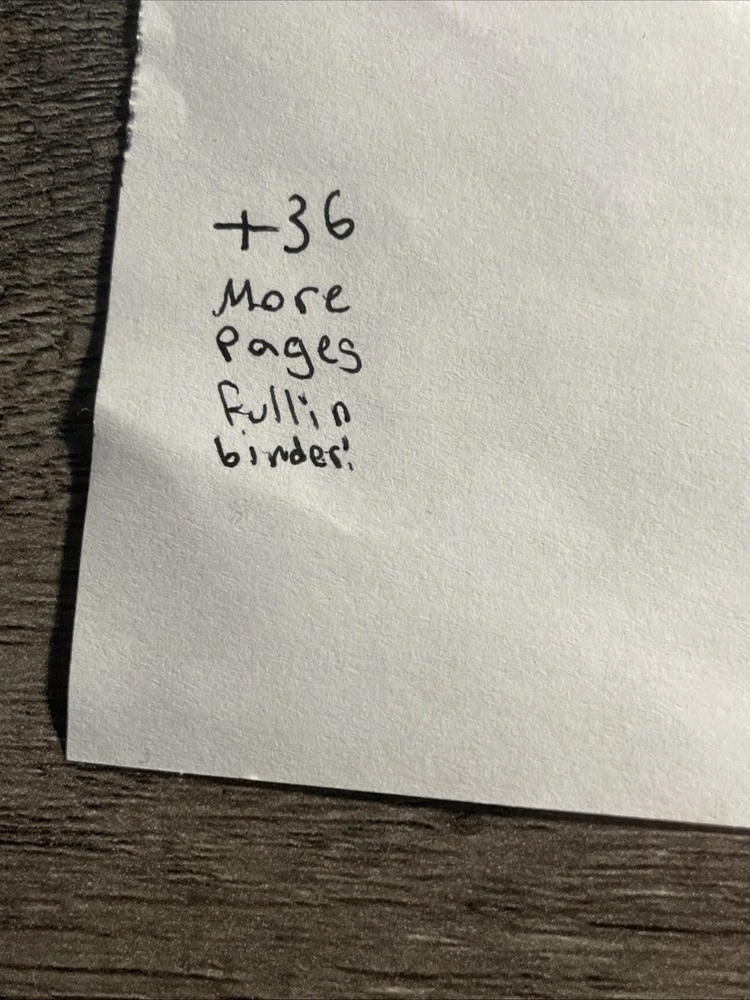 +36
More
Pages
full in
binder!